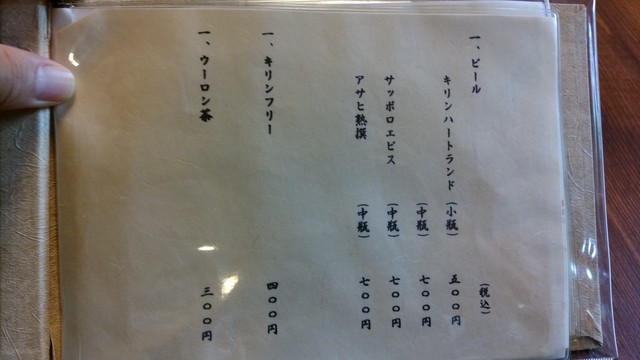 一、ビール
(税込)
キリンハートランド (小瓶) 五〇〇円
(中瓶) 七〇〇円
サッポロエビス (中瓶) 七〇〇円
アサヒ熟撰 (中瓶) 七〇〇円
一、キリンフリー 四〇〇円
一、ウーロン茶 三〇〇円